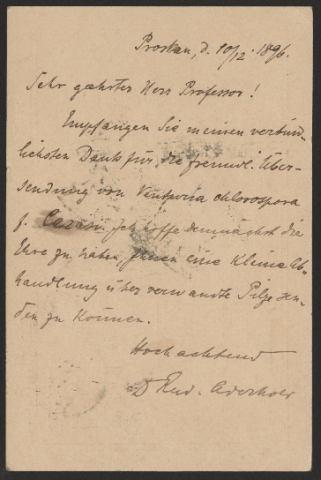 Proskau, d. 10/12. 1896.
Sehr geehrter Herr Professor!
Empfangen Sie meinen verbind-
lichsten Dank für die freundl. Über-
sendung von Venturia chlorospora
f. Cerasi. Ich hoffe demnächst die
Ehre zu haben, Ihnen eine kleine Ab-
handlung über verwandte Pilze sen-
den zu können.
Hochachtend
Dr Rud. Aderhold